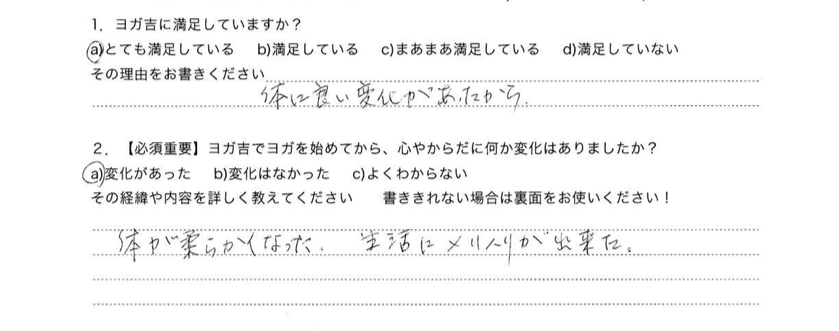 1. ヨガ吉に満足していますか？
a)とても満足している b)満足している c)まあまあ満足している d)満足していない
その理由をお書きください
体に良い変化があったから.
2. 【必須重要】ヨガ吉でヨガを始めてから、心やからだに何か変化はありましたか？
a)変化があった b)変化はなかった c)よくわからない
その経緯や内容を詳しく教えてください 書ききれない場合は裏面をお使いください！
体が柔らかくなった. 生活にメリハリが出来た。